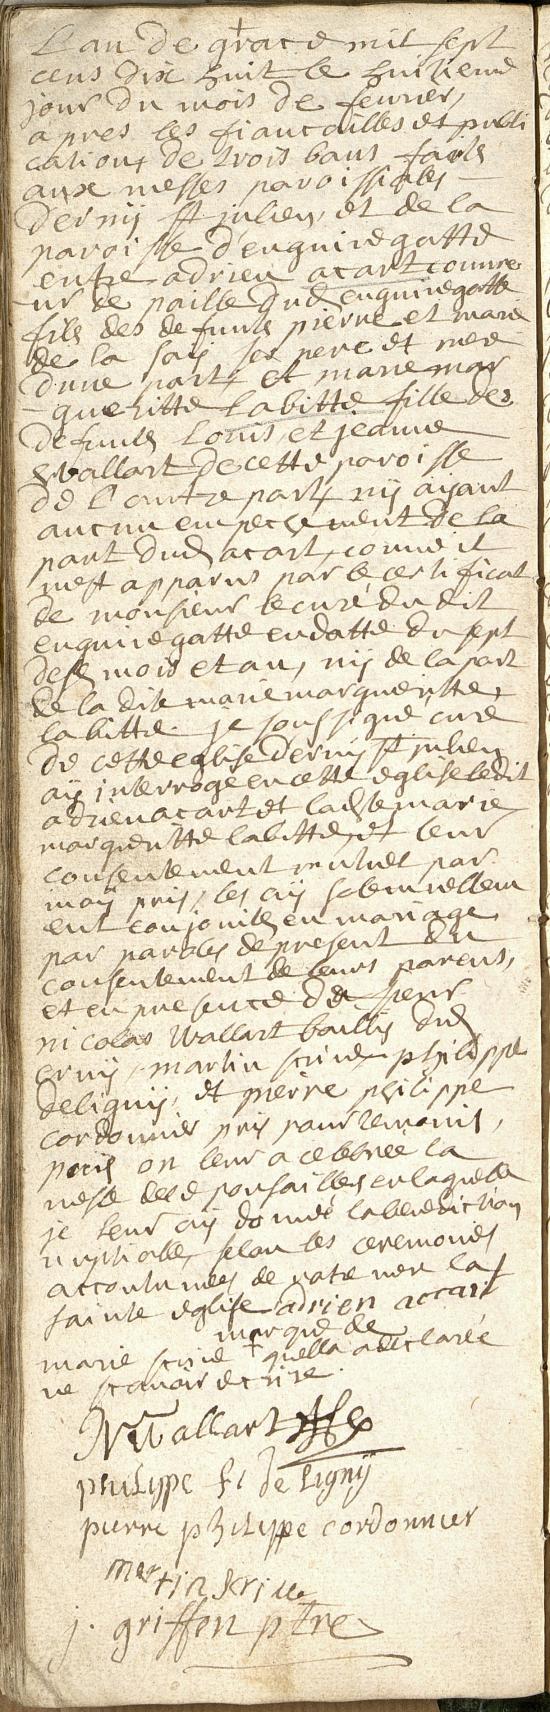 L'an de grace mil sept
cens dix huit le huitieme
jour du mois de fevrier,
apres les fiancailles et publi
cations de trois bans faits
aux messes paroissiales
derny st julien, et de la
paroisse d'enguinegatte
entre adrien acart couvre
-ur de paille dud enguinegatte
fils des defunts pierre et marie
de la ses pere et mere
d'une part, et marie mar
-gueritte labitte fille des
defunts Louis et jeanne
Wallart de cette paroisse
de l'autre part, ny aijant
aucun empechement de la
part dud acart, comme il
m'est apparus par le certificat
de monsieur le curé du dit
enguinegatte en datte du sept
desd mois et an, nij de la part
de la dite marie margueritte
labitte je soussigné curé
de cette eglise d'erny st julien
aij interrogé en cette eglise ledit
adrien acart et ladte marie
margueritte labitte, et leur
consentement mutuel par
moij pris, les aij solemnellem
ent conjoints en mariage
par paroles de present du
consentement de leurs parens,
et en presence de sieur
nicolas Wallart baillij dud
ernij, martin scrive, philippe
delignij, et pierre philippe
cordonnier pris pour temoins,
puis on leur a celebrée la
messe des epousailles en laquelle
je leur aij donné la benediction
nuptialle, selon les ceremonies
accoutumées de notre mere la
sainte eglise adrien accart
marque de
marie + quella a declarée
ne scavoir ecrire.
N Wallart
philippe fr de Lignij
pierre philippe cordonnier
martin skrive
j. griffon ptre